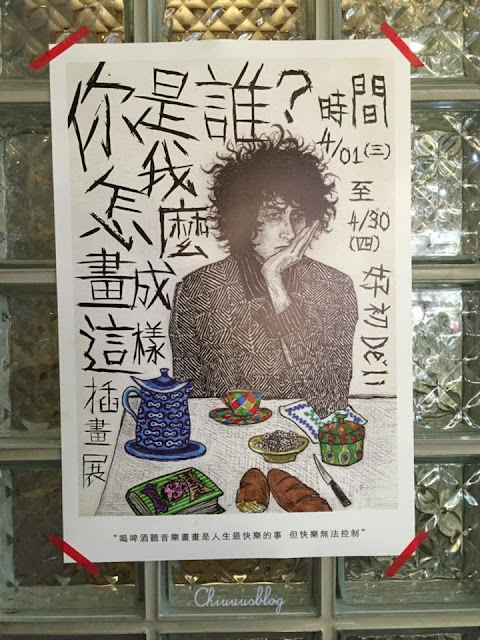 你是誰?
我怎麼
畫成
這樣
插畫展
時間
4/01(三)
至
4/30
(四)
初Deli
“喝啤酒聽音樂畫畫是人生最快樂的事 但快樂無法控制”
Chiuuusblog